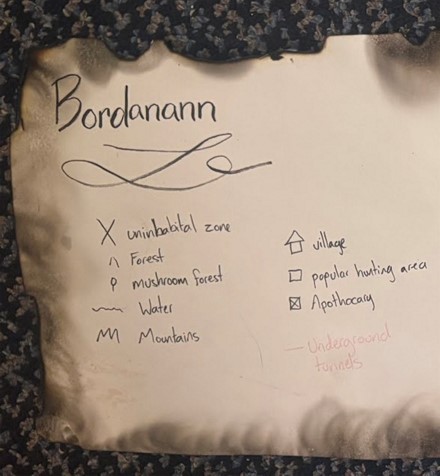 Bordanann
X uninhabital zone
Forest
mushroom forest
Water
Mountains
village
popular hunting area
Apothocary
Underground
tunnels